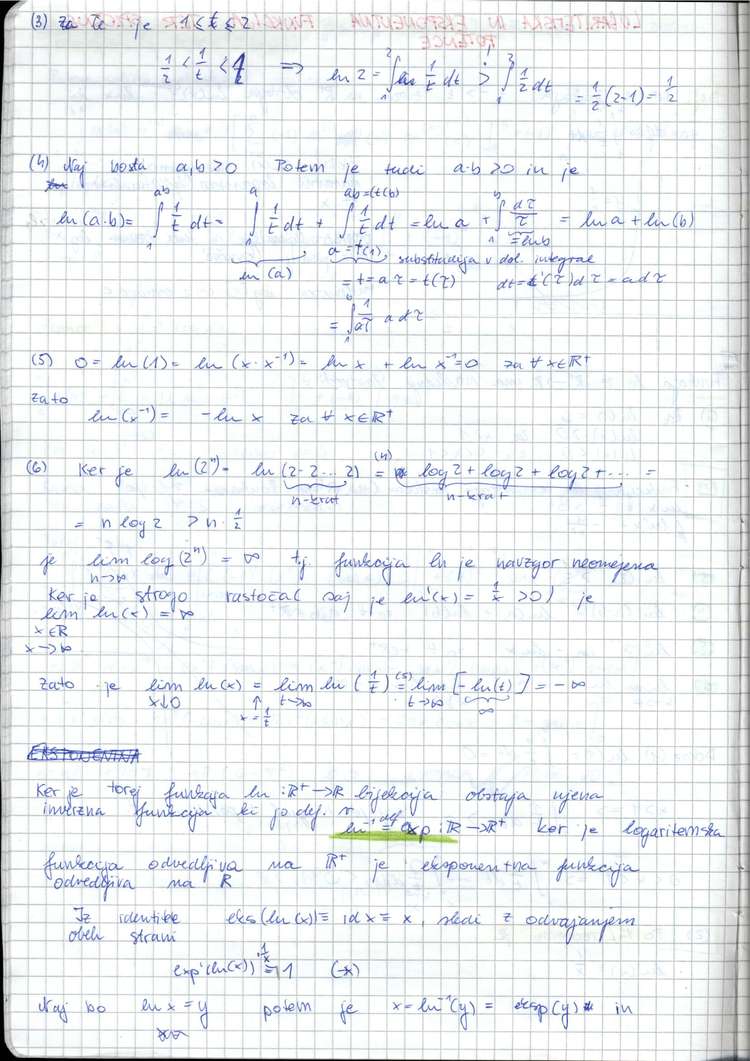 (3) za če je 1 ≤ t ≤ 2
1/2 < 1/t < 1 ⟹ ln 2 = ∫₁² 1/t dt > ∫₁² 1/2 dt = 1/2 (2-1) = 1/2
(4) Naj bosta a,b > 0 Potem je tudi a·b > 0 in je
ln(a·b) = ∫₁^ab 1/t dt = ∫₁^a 1/t dt + ∫_{a=t(1)}^{ab=t(b)} 1/t dt = ln a + ∫₁^b dτ/τ = ln a + ln(b)
ln(a) substitucija v dol. integral = ln b
= t = aτ = t(τ) dt = t'(τ)dτ = adτ
= ∫₁^b 1/aτ a dτ
(5) 0 = ln(1) = ln(x·x⁻¹) = ln x + ln x⁻¹ = 0 za ∀ x∈ℝ⁺
zato
ln(x⁻¹) = -ln x za ∀ x∈ℝ⁺
(6) Ker je ln(2ⁿ) = ln(2·2...2) =⁽⁴⁾ log2 + log2 + log2 + ... =
n-krat n-krat
= n log2 > n· 1/2
je lim log(2ⁿ) = ∞ t.j. funkcija ln je navzgor neomejena
n→∞
Ker je strogo rastoča (saj je ln'(x) = 1/x > 0) je
lim ln(x) = ∞
x∈ℝ
x→∞
zato je lim ln(x) = lim ln(1/t) =⁽⁵⁾ lim [-ln(t)] = -∞
x↓0 ↑ t→∞ t→∞ ∞
x=1/t
EKSPONENTNA
Ker je torej funkcija ln : ℝ⁺→ℝ bijekcija obstaja njena
inverzna funkcija ki jo def.
ln⁻¹ =def exp : ℝ→ℝ⁺ ker je logaritemska
funkcija odvedljiva na ℝ⁺ je eksponentna funkcija
odvedljiva na ℝ
Iz identitete eks(ln(x)) = id x = x, sledi z odvajanjem
obeh strani
exp'(ln(x))·1/x = 1 (*)
Naj bo ln x = y potem je x = ln⁻¹(y) = eksp(y) in